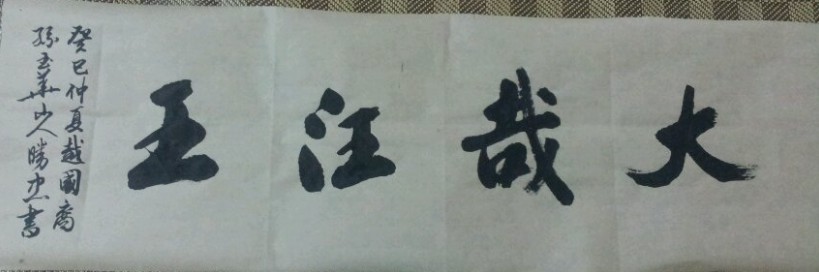 大哉汪王
癸巳仲夏越國裔
孫玉華山人勝忠書